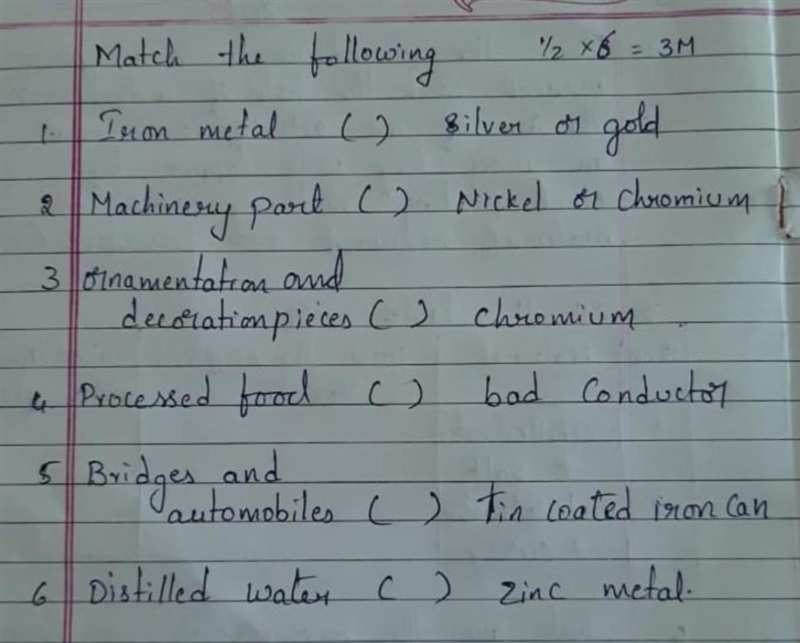 Match the following ½ × 6 = 3M
1. Iron metal ( ) Silver or gold
2 Machinery part ( ) Nickel or Chromium
3 ornamentation and
decoration pieces ( ) chromium
4 Processed food ( ) bad Conductor
5 Bridges and
automobiles ( ) Tin coated iron Can
6 Distilled water ( ) Zinc metal.